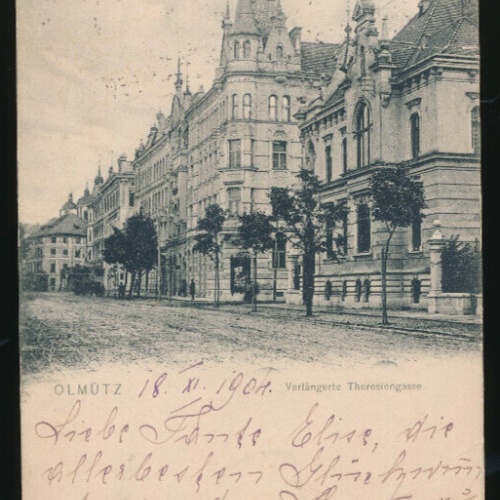 OLMÜTZ 18. XI. 1904. Verlängerte Theresiengasse
Liebe Tante Elise, die
allerbesten Glückwün